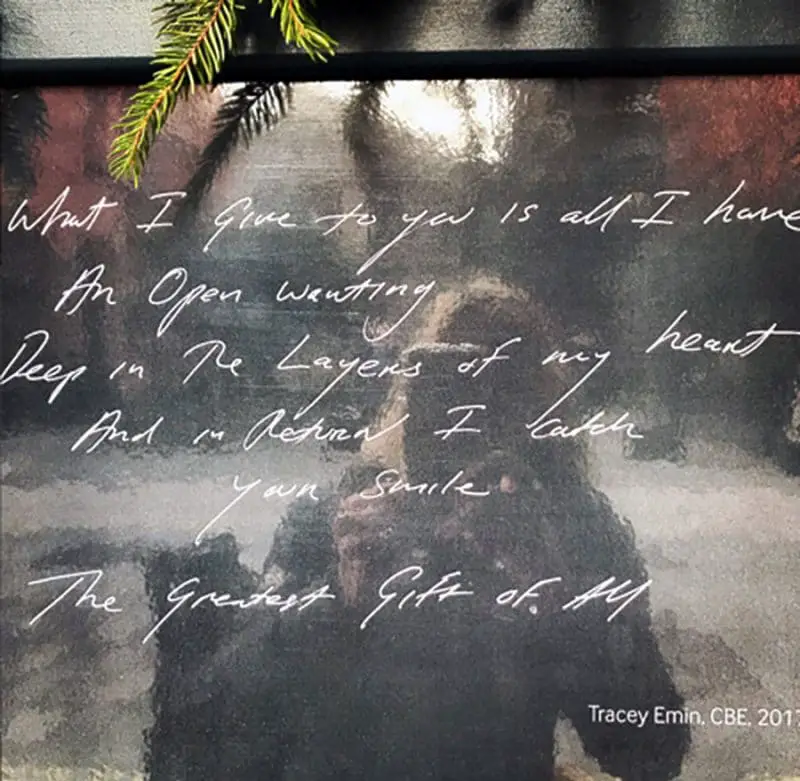 What I Give to you is all I have
An Open wanting
Deep in The Layers of my heart
And in Return I catch
your smile
The Greatest Gift of All
Tracey Emin, CBE, 2017